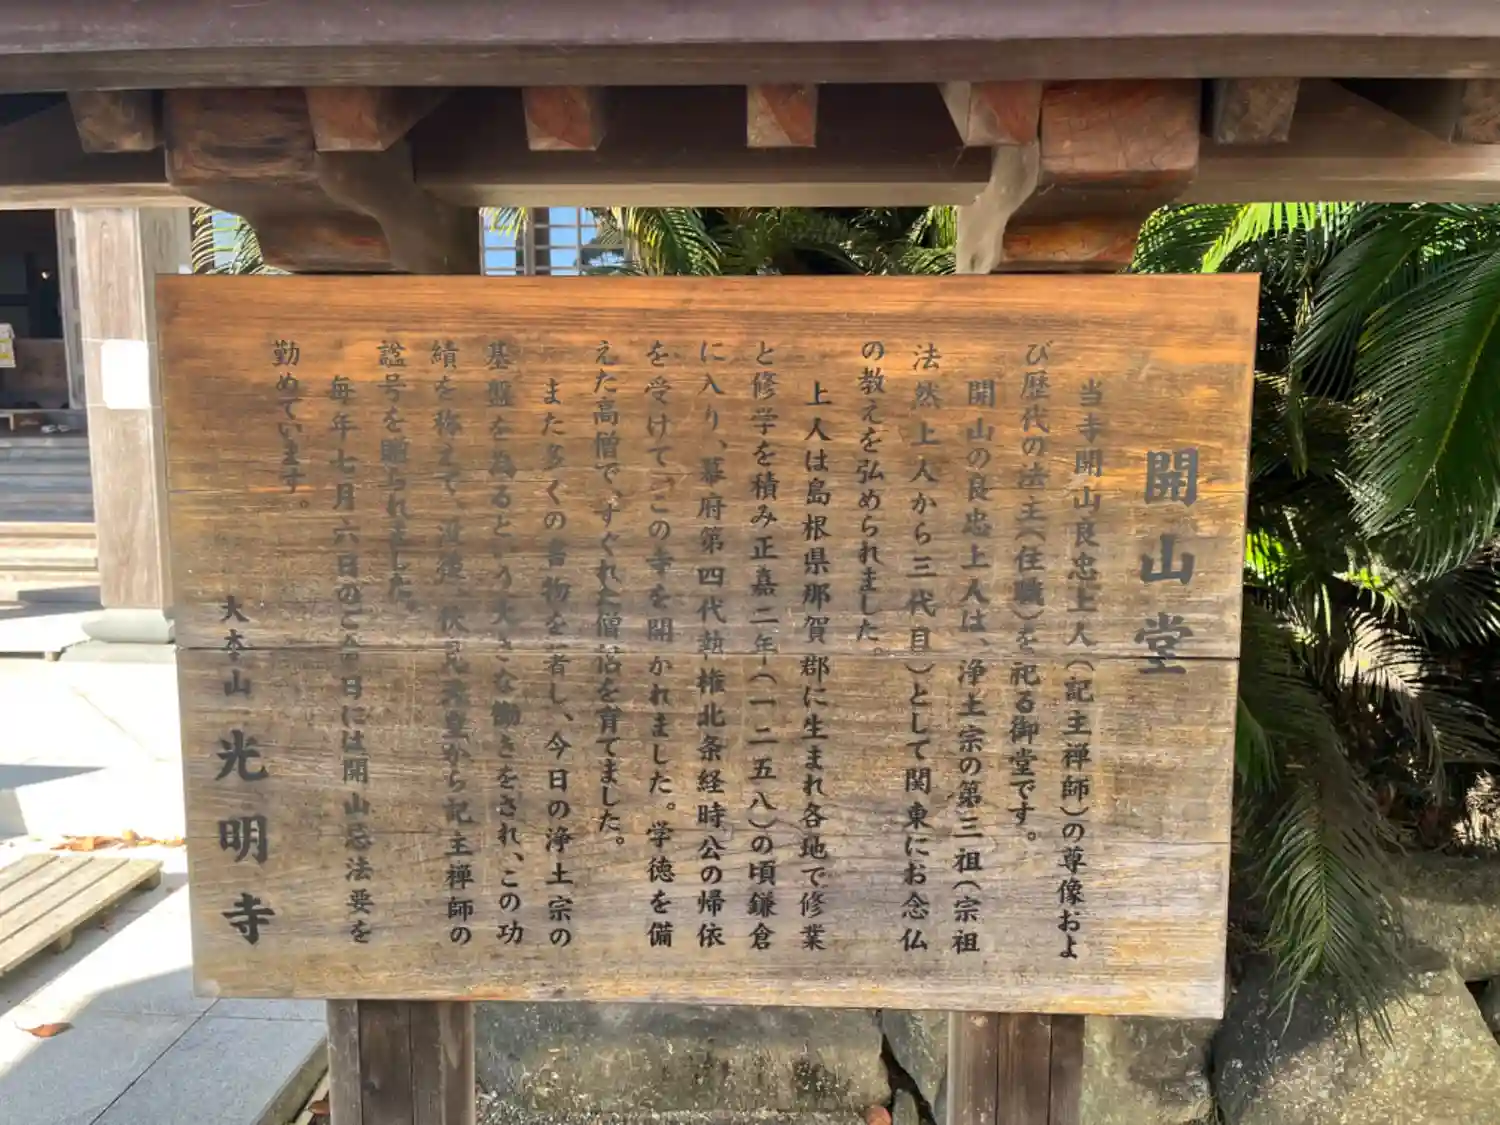 開山堂
当寺開山良忠上人(記主禅師)の尊像およ
び歴代の法主(住職)を祀る御堂です。
開山の良忠上人は、浄土宗の第三祖(宗祖
法然上人から三代目)として関東にお念仏
の教えを弘められました。
上人は島根県那賀郡に生まれ各地で修業
と修学を積み正嘉二年(一二五八)の頃鎌倉
に入り、幕府第四代執権北条経時公の帰依
を受けて、この寺を開かれました。学徳を備
えた高僧で、すぐれた僧侶を育てました。
また多くの書物を著し、今日の浄土宗の
基盤を為るという大きな働きをされ、この功
績を称えて、没後 伏見天皇から記主禅師の
諡号を贈られました。
毎年七月六日のご命日には開山忌法要を
勤めています。
大本山 光明寺